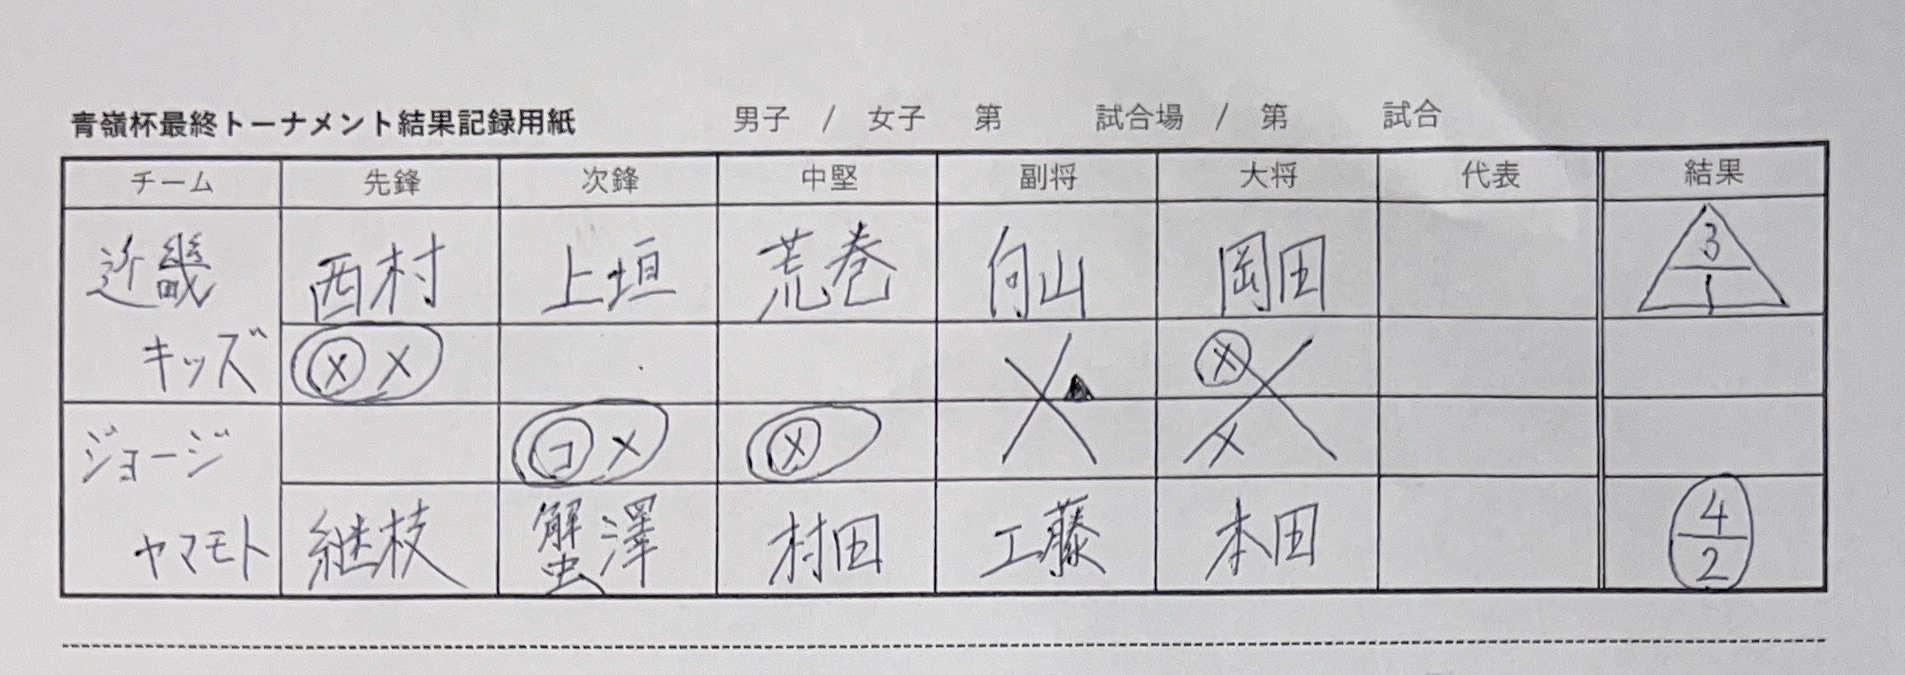 青嶺杯最終トーナメント結果記録用紙 男子 / 女子 第 試合場 / 第 試合
チーム 先鋒 次鋒 中堅 副将 大将 代表 結果
近畿 西村 上垣 荒巻 向山 岡田 3
1
キッズ メメ メ
ジョージ コメ メ メ
ヤマモト 継枝 蟹澤 村田 工藤 本田 4
2